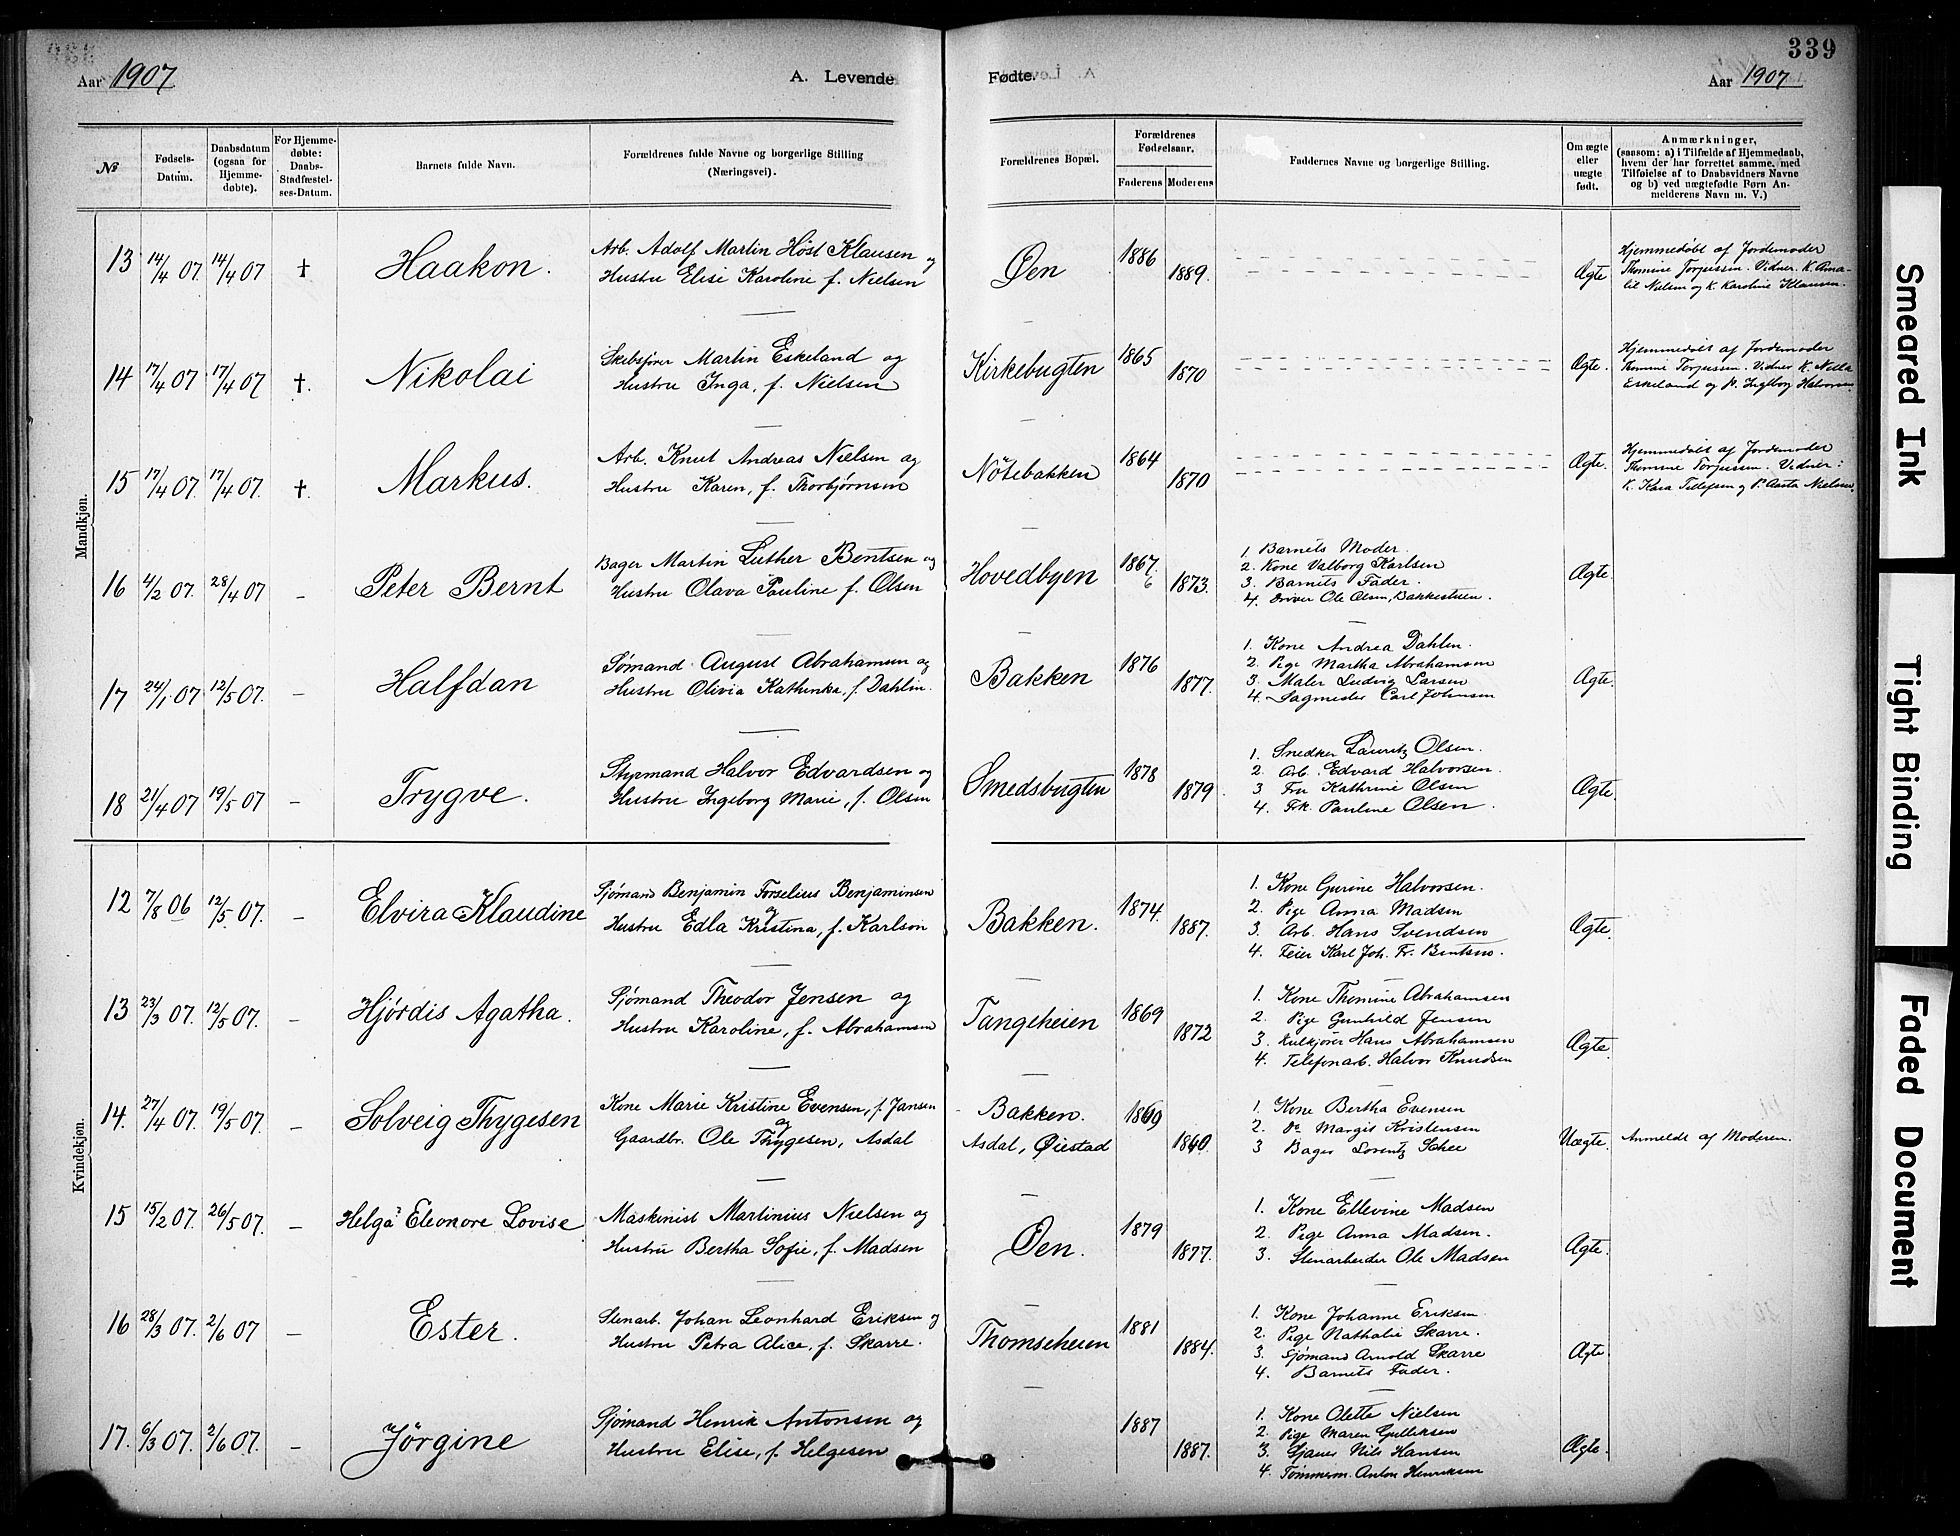 339
Aar 1907
A. Levende
Fødte.
Aar 1907
№
Fødsels-Datum.
Daabsdatum (ogsaa for Hjemmedøbte).
For Hjemmedøbte: Daabs-Stadfæstelses-Datum.
Barnets fulde Navn.
Forældrenes fulde Navne og borgerlige Stilling (Næringsvei).
Forældrenes Bopæl.
Forældrenes Fødselsaar.
Faderens
Moderens
Faddernes Navne og borgerlige Stilling.
Om ægte eller uægte født.
Anmærkninger,
(saasom: a) i Tilfælde af Hjemmedaab, hvem der har forrettet samme, med Tilføielse af to Daabsvidners Navne og b) ved uægtefødte Børn Anmelderens Navn m. V.)
Mandkjøn.
13 14/4 07. 14/4 07 † Haakon.
Arb. Adolf Martin Höst Klausen og
Hustru Elise Karoline f. Nielsen
Øen 1886 1889. Ægte
Hjemmedøbt af Jordemoder
Thomine Torjussen. Vidner. K. Ama-
lie Nielsen og K. Karoline Klausen.
14 17/4 07 17/4 07 †. Nikolai
Skibsfører Martin Eskeland og
Hustru Inga, f. Nielsen
Kirkebugten 1865 1870 Ægte.
Hjemmedøbt af Jordemoder
Thomine Torjussen. Vidner K. Nella
Eskeland og P. Ingborg Halvorsen.
15 17/4 07. 17/4 07. †. Markus.
Arb. Knut Andreas Nielsen og
Hustru Karen, f. Thorbjørnsen
Nötebakken 1864 1870 Ægte.
Hjemmedøbt af Jordemoder
Thomine Torjussen. Vidner:
K. Kaia Tellefsen og P. Aasta Nielsen.
16 4/2 07. 28/4 07 – Peter Bernt
Bager Martin Luther Bentsen og
Hustru Olava Pauline f. Olsen
Hovedbyen 1867. 6 1873. Ægte
1. Barnets Moder.
2. Kone Valborg Karlsen
3. Barnets Fader.
4. Driver Ole Olsen, Bakkestuen.
17 24/1 07 12/5 07. – Halfdan
Sømand August Abrahamsen og
Hustru Olivia Kathinka, f. Dahlin.
Bakken 1876 1877. Ægte.
1. Kone Andrea Dahlin.
2. Pige Martha Abrahamsen
3. Maler Ludvig Larsen
4. Sagmester Carl Johnsen
18 21/4 07 19/5 07 – Trygve.
Styrmand Halvor Edvardsen og
Hustru Ingeborg Marie, f. Olsen
Smedsbugten 1878 1879. Ægte.
1. Snedker Lauritz Olsen.
2. Arb. Edvard Halvorsen.
3 Fru Kathrine Olsen
4. Frk. Pauline Olsen.
Kvindekjøn.
12 7/8 06 12/5 07. – Elvira Klaudine
Sjømand Benjamin Forselius Benjaminsen
og
Hustru Edla Kristina, f. Karlson
Bakken. 1874. 1887. Ægte.
1. Kone Gurine Halvorsen.
2. Pige Anna Madsen
3. Arb. Hans Svendsen
4. Feier Karl Joh. Fr. Bentsen.
13 23/3 07. 12/5 07. – Hjördis Agatha.
Sjømand Theodor Jensen og
Hustru Karoline, f. Abrahamsen
Tangeheien 1869 1872 Ægte.
1. Kone Thomine Abrahamsen
2. Pige Gunhild Jensen
3. Kulkjører Hans Abrahamsen
4. Telefonarb. Halvor Knudsen
14. 27/4 07. 19/5 07. – Solveig Thygesen
Kone Marie Kristine Evensen, f. Jansen
og
Gaardbr. Ole Thygesen, Asdal
Bakken.
Asdal, Øiestad
Uægte.
1. Kone Bertha Evensen
2. Do Margit Kristensen
3 Bager Lorentz Schee
Anmeldt af Moderen.
15 15/2 07. 26/5 07. – Helga Eleonore Lovise
Maskinist Martinius Nielsen og
Hustru Bertha Sofie, f. Madsen
Øen. 1879 1877. Ægte.
1. Kone Ellevine Madsen
2. Pige Anna Madsen.
3. Stenarbeider Ole Madsen
16 28/3 07. 2/6 07 – Ester.
Stenarb. Johan Leonhard Eriksen og
Hustru Petra Alice, f. Skarre.
Thomseheien 1881 1884. Ægte
1. Kone Johanne Eriksen
2. Pige Nathalie Skarre.
3. Sjømand Arnold Skarre
4. Barnets Fader.
17. 6/3 07. 2/6 07. – Jörgine
Sjømand Henrik Antonsen og
Hustru Elise, f. Helgesen
1887 1887. Ægte.
1. Kone Olette Nielsen
2. Pige Maren Gulliksen
3. Sjauer Nils Hansen
4. Tömmerm. Anton Henriksen
Smeared Ink
Tight Binding
Faded Document